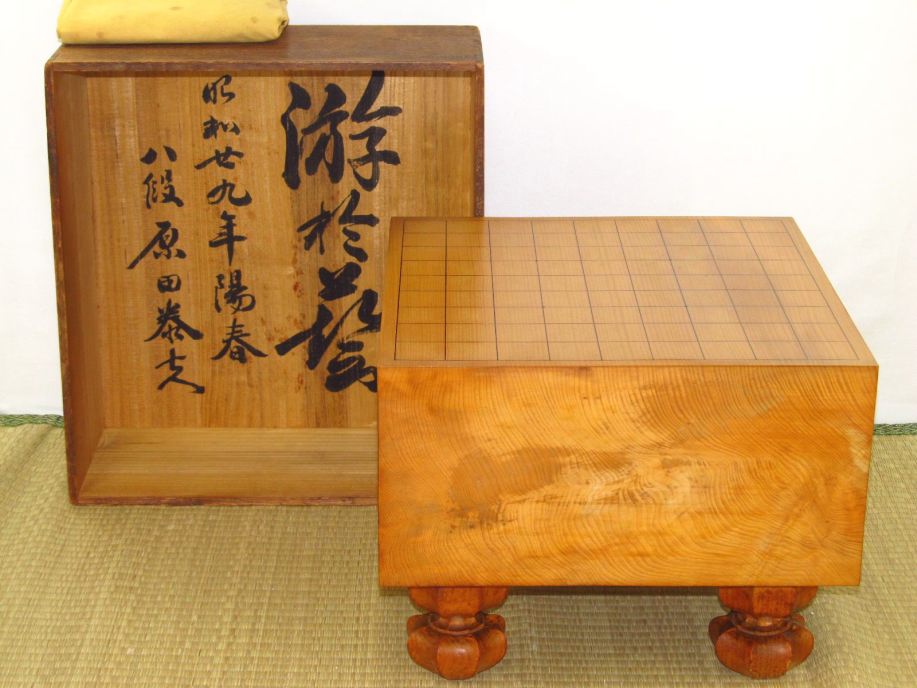 游於藝
昭和廿九年陽春
八段原田泰夫